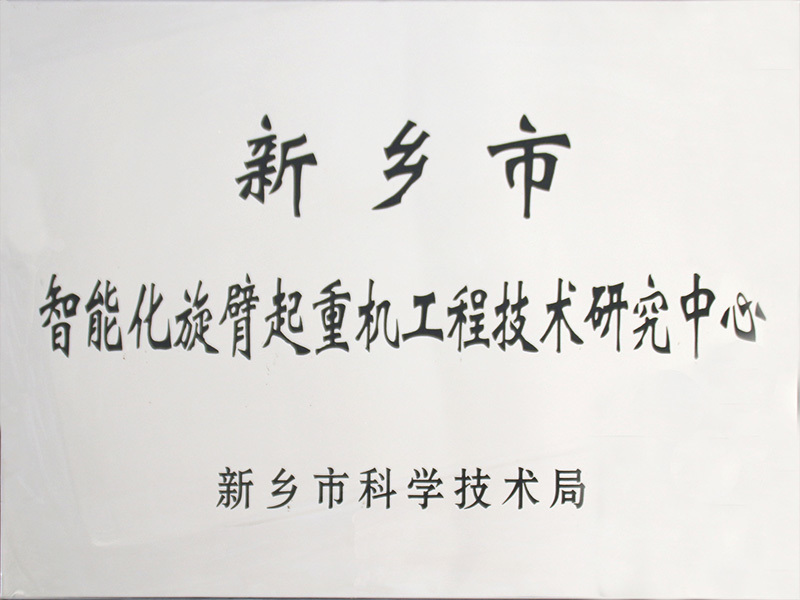 新乡市
智能化旋臂起重机工程技术研究中心
新乡市科学技术局